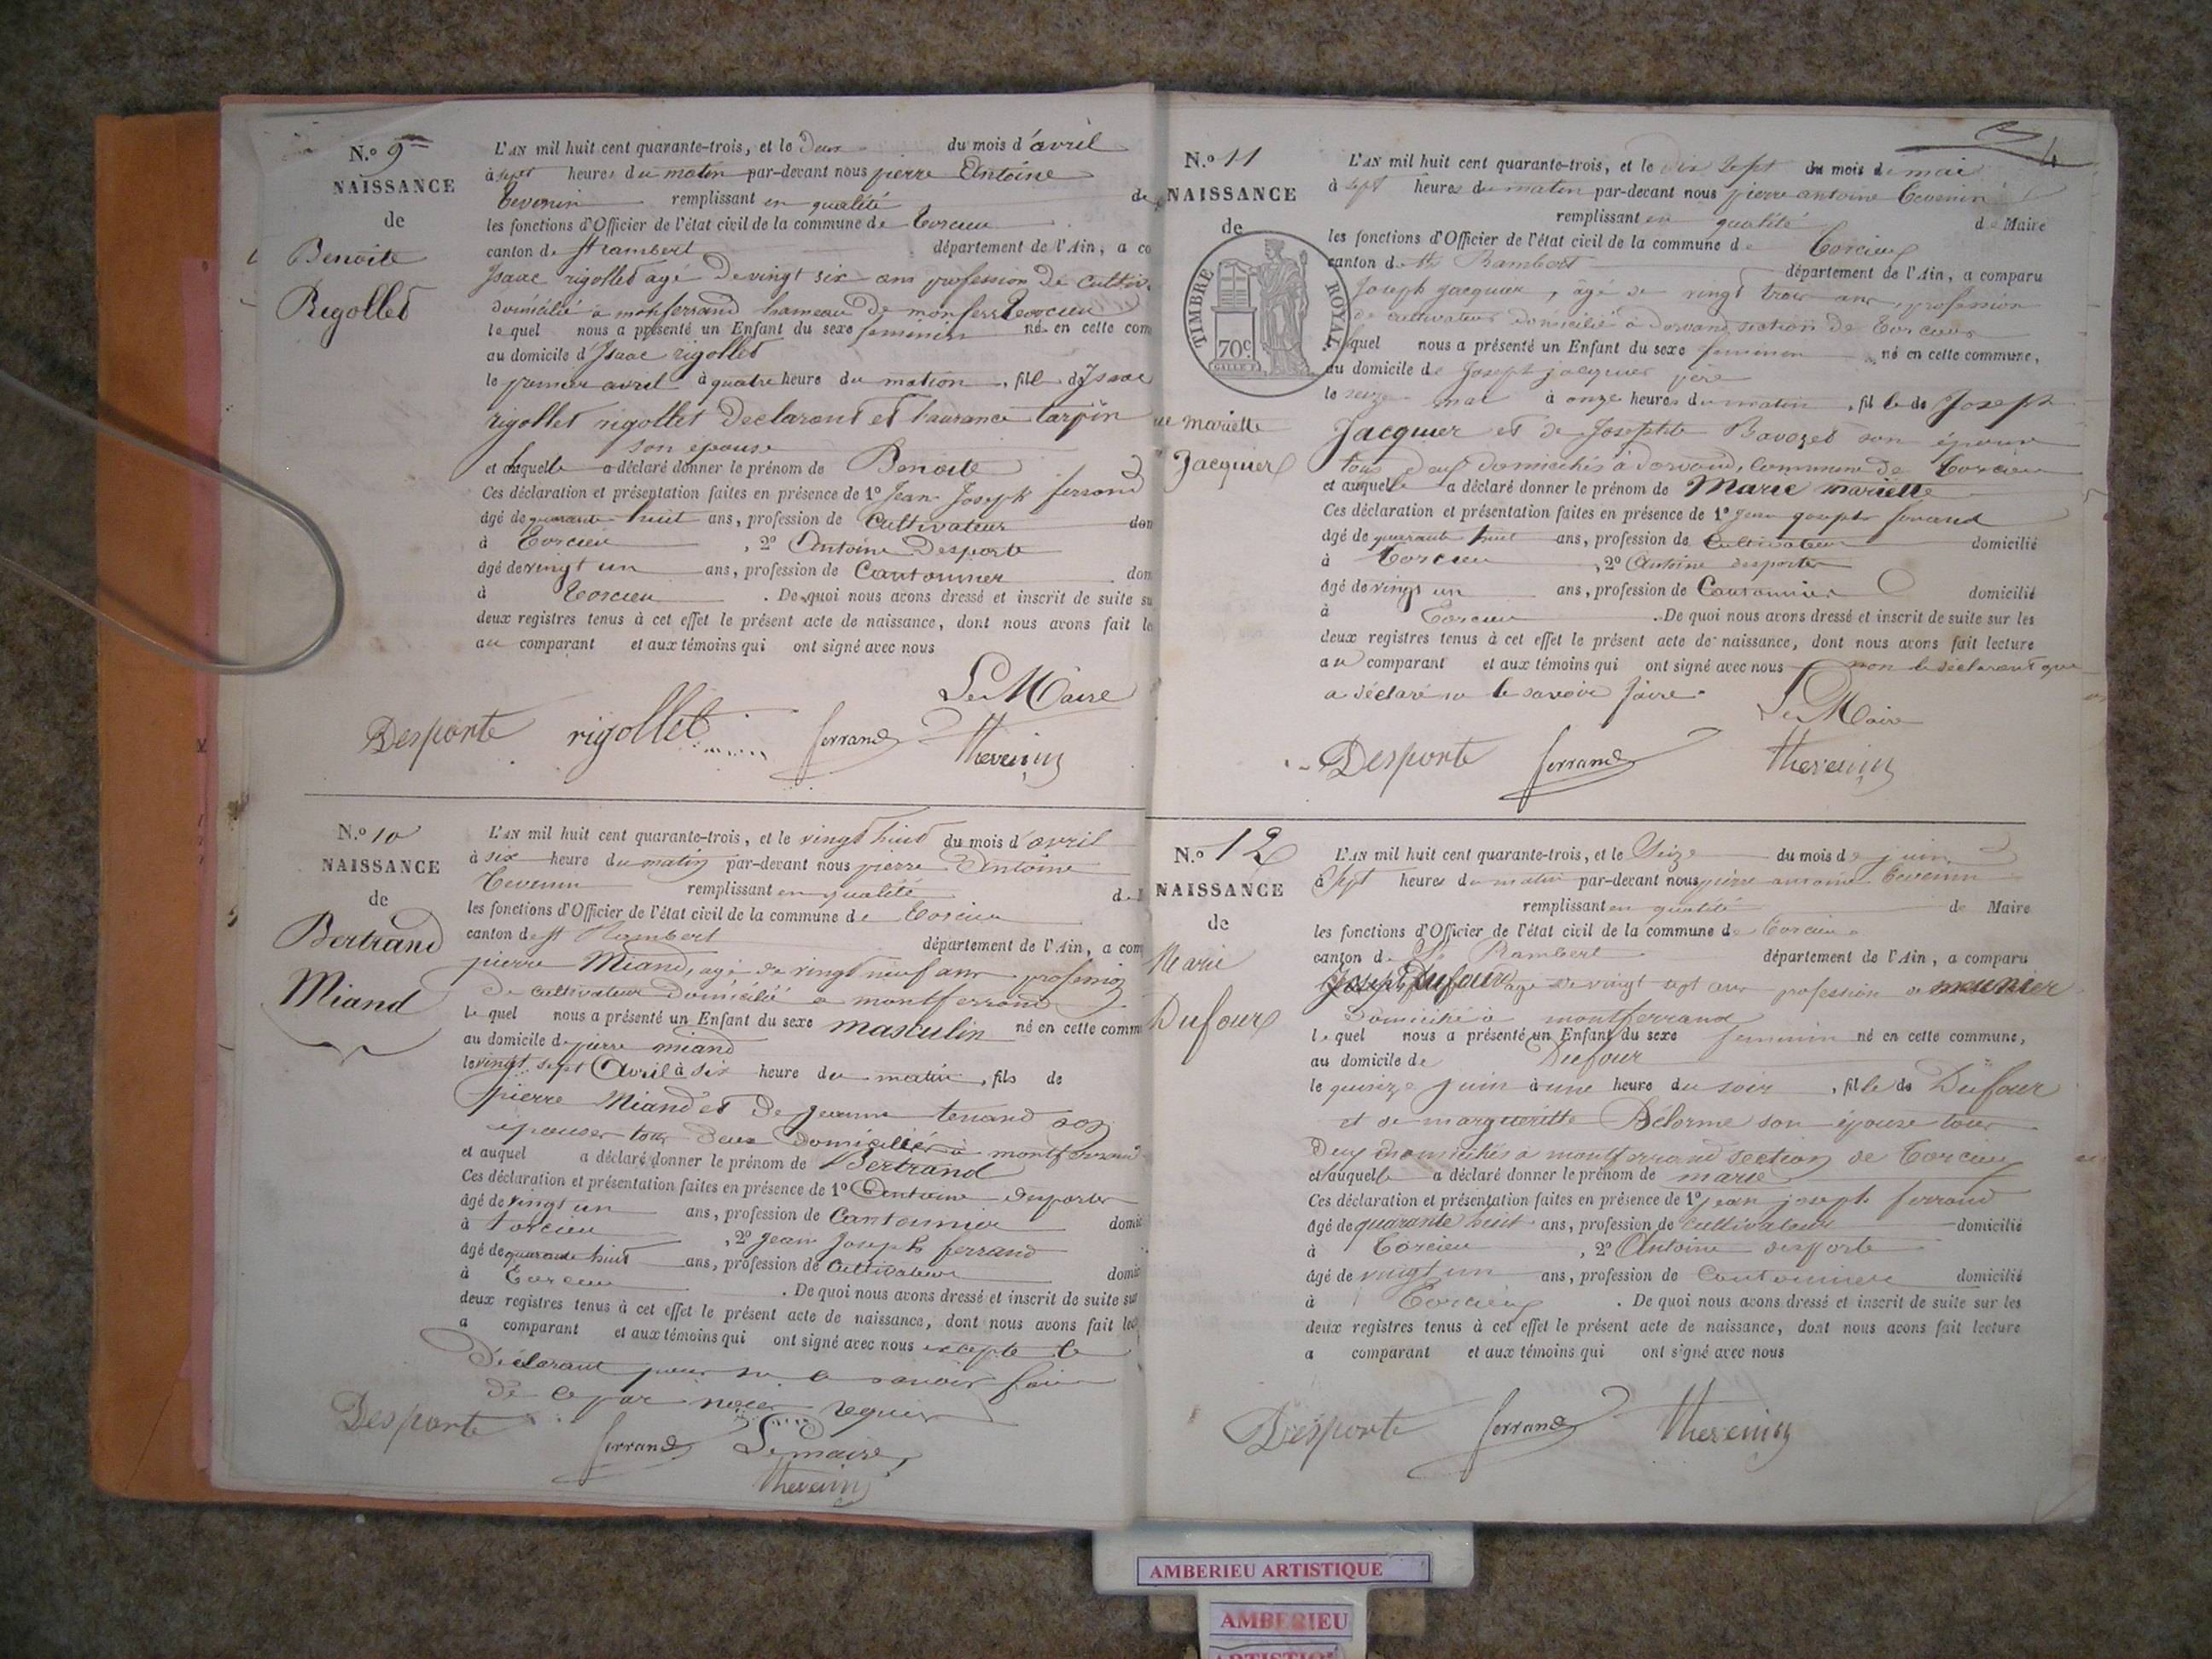 N.o 9
NAISSANCE
de
Benoite
Rigollet
L'AN mil huit cent quarante-trois, et le Deux du mois d'avril
à sept heures du matin par-devant nous pierre Antoine
Tevenin remplissant en qualité de
les fonctions d'Officier de l'état civil de la commune de Torcieu
canton de St rambert département de l'Ain, a co
Isaac rigollet agé de vingt six ans profession de cultiv
domicilié a monferrand hameau de
le quel nous a présenté un Enfant du sexe feminin né en cette com
au domicile d'Isaac rigollet
le premier avril à quatre heure du matin, fille d'Isaac
rigollet rigollet Declarant et laurance tarpin
son epouse
et auquelle a déclaré donner le prénom de Benoite
Ces déclaration et présentation faites en présence de 1o Jean Joseph ferrand
âgé de quarante huit ans, profession de Cultivateur dom
à Torcieu, 2o Antoine Desporte
âgé de vingt un ans, profession de Cantonnier dom
à Torcieu. De quoi nous avons dressé et inscrit de suite su
deux registres tenus à cet effet le présent acte de naissance, dont nous avons fait le
au comparant et aux témoins qui ont signé avec nous
Le Maire
Desporte rigollet ferrand thevenin
N.o 10
NAISSANCE
de
Bertrand
Miand
L'AN mil huit cent quarante-trois, et le vingt huit du mois d'avril
à six heure du matin par-devant nous pierre Antoine
Tevenin remplissant en qualité de
les fonctions d'Officier de l'état civil de la commune de Torcieu
canton de st Rambert département de l'Ain, a com
pierre Miand, agé de vingt neuf ans profession
De cultivateur Domicilié a montferrand
le quel nous a présenté un Enfant du sexe masculin né en cette comm
au domicile de pierre miand
le vingt sept Avril à six heure du matin, fils de
pierre Miand et De jeanne tenand son
epouse tous Deux Domiciliés à montferrand
et auquel a déclaré donner le prénom de Bertrand
Ces déclaration et présentation faites en présence de 1o Antoine desporte
âgé de vingt un ans, profession de Cantonnier domic
à torcieu, 2o Jean Joseph ferrand
âgé de quarante huit ans, profession de Cultivateur domic
à Torcieu. De quoi nous avons dressé et inscrit de suite sur
deux registres tenus à cet effet le présent acte de naissance, dont nous avons fait lec
a comparant et aux témoins qui ont signé avec nous excepté le
Déclarant pour ne le savoir faire
de ce par nous requis
Desporte ferrand Le maire
thevenin
4
N.o 11
NAISSANCE
de
TIMBRE ROYAL
70c
mariette
Jacquier
L'AN mil huit cent quarante-trois, et le dix sept du mois de mai
à sept heures du matin par-devant nous pierre antoine Tevenin
remplissant en qualité de Maire
les fonctions d'Officier de l'état civil de la commune de Torcieu
canton de St Rambert département de l'Ain, a comparu
Joseph jacquier, âgé de vingt trois ans, profession
de cultivateur domicilié à dorvand section de Torcieu
lequel nous a présenté un Enfant du sexe feminin né en cette commune,
au domicile de Joseph jacquier père
le seize mai à onze heures du matin, fille de Joseph
Jacquier et de Josephte Bavozet son épouse
tous deux domiciliés à dorvand, Commune de Torcieu
et auquelle a déclaré donner le prénom de Marie mariette
Ces déclaration et présentation faites en présence de 1o jean joseph ferrand
âgé de quarante huit ans, profession de Cultivateur domicilié
à Torcieu, 2o Antoine desporte
âgé de vingt un ans, profession de Cantonnier domicilié
à Torcieu. De quoi nous avons dressé et inscrit de suite sur les
deux registres tenus à cet effet le présent acte de naissance, dont nous avons fait lecture
au comparant et aux témoins qui ont signé avec nous non le déclarant qui
a déclaré ne le savoir faire.
Le Maire
Desporte ferrand thevenin
N.o 12
NAISSANCE
de
Marie
Dufour
L'AN mil huit cent quarante-trois, et le Seize du mois de juin
à Sept heures du matin par-devant nous pierre antoine Tevenin
remplissant en qualité de Maire
les fonctions d'Officier de l'état civil de la commune de Torcieu
canton de St Rambert département de l'Ain, a comparu
Joseph Dufour agé de vingt sept ans profession de meunier
Domicilié à montferrand
lequel nous a présenté un Enfant du sexe feminin né en cette commune,
au domicile de Dufour
le quinze juin à une heure du soir, fille de Dufour
et de margueritte Délorme son épouse tous
Deux domiciliés a montferrand section de Torcieu
et auquelle a déclaré donner le prénom de marie
Ces déclaration et présentation faites en présence de 1o jean joseph ferrand
âgé de quarante huit ans, profession de Cultivateur domicilié
à Torcieu, 2o Antoine desporte
âgé de vingt un ans, profession de Cantonnier domicilié
à Torcieu. De quoi nous avons dressé et inscrit de suite sur les
deux registres tenus à cet effet le présent acte de naissance, dont nous avons fait lecture
a comparant et aux témoins qui ont signé avec nous
Desporte ferrand thevenin
AMBERIEU ARTISTIQUE
AMBERIEU
ARTISTIQUE